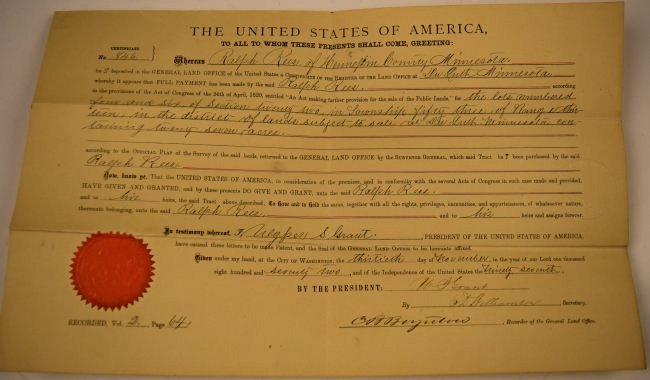 THE UNITED STATES OF AMERICA,
TO ALL TO WHOM THESE PRESENTS SHALL COME, GREETING:
CERTIFICATE
No. 846
Whereas Ralph Rees of Hennepin County Minnesota
ha s deposited in the GENERAL LAND OFFICE of the United States a CERTIFICATE OF THE REGISTER OF THE LAND OFFICE AT Du Luth Minnesota
whereby it appears that FULL PAYMENT has been made by the said Ralph Rees according
to the provisions of the Act of Congress of the 24th April, 1820, entitled "An Act making further provision for the sale of the Public Lands," for the lots numbered
four and six of Section twenty two, in Township fifty three, of Range thir
teen, in the district of lands subject to sale at Du Luth Minnesota, con
taining twenty seven acres.
according to the OFFICIAL PLAT of the Survey of the said lands, returned to the GENERAL LAND OFFICE by the SURVEYOR GENERAL, which said Tract ha s been purchased by the said
Ralph Rees
Now, know ye, That the UNITED STATES OF AMERICA, in consideration of the premises, and in conformity with the several Acts of Congress in such case made and provided,
HAVE GIVEN AND GRANTED, and by these presents DO GIVE AND GRANT, unto the said Ralph Rees
and to his heirs, the said Tract above described; To have and to hold the same, together with all the rights, privileges, immunities, and appurtenances, of whatsoever nature,
thereunto belonging, unto the said Ralph Rees and to his heirs and assigns forever.
In testimony whereof, I, Ulysses S. Grant, PRESIDENT OF THE UNITED STATES OF AMERICA,
have caused these letters to be made Patent, and the Seal of the GENERAL LAND OFFICE to be hereunto affixed.
Given under my hand, at the CITY OF WASHINGTON, the thirtieth day of November, in the year of our Lord one thousand
eight hundred and seventy two, and of the Independence of the United States the ninety seventh.
BY THE PRESIDENT: U S Grant
By Secretary.
RECORDED, Vol. 2, Page 64
Recorder of the General Land Office.